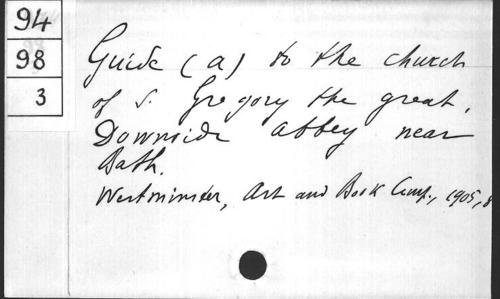 94
98
3
Guide (a) to the church
of S. Gregory the great,
Downside abbey near
Bath.
Westminster, Art and Book Comp., 1905, 8